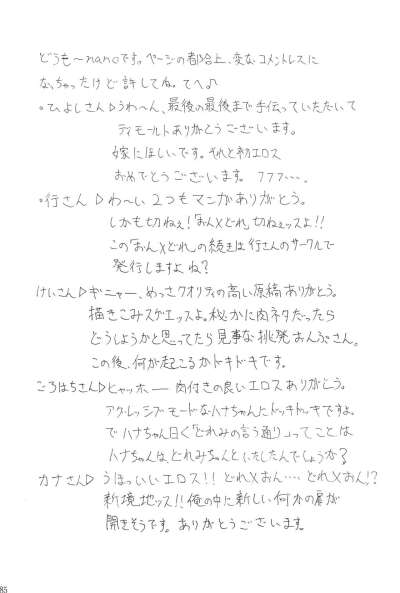 どうも～nanoです。ページの都合上、変なコメントレスに
なっちゃったけど許してね。てへ♪
・ひよしさん▷うわ～ん、最後の最後まで手伝っていただいて
ディモールトありがとうございます。
嫁にほしいです。それと初エロス
おめでとうございます。フフフ…。
・行さん▷わ～い2つもマンガありがとう。
しかも切ねぇ!「おん×どれ」切ねぇッスよ!!
この「おん×どれ」の続きは行さんのサークルで
発行しますよね?
けいさん▷ギニャー、めっさクオリティの高い原稿ありがとう。
描きこみスゲェッスよ。秘かに肉ネタだったら
どうしようかと思ってたら見事な挑発おんぷさん。
この後、何が起こるかドキドキです。
ころはちさん▷ヒャッホー 肉付きの良いエロスありがとう。
アグレッシブモードなハナちゃんにドッキドッキですよ。
でハナちゃん曰く「どれみの言う通り」ってことは
ハナちゃんは、どれみちゃんといたしたんでしょうか?
カナさん▷うほっいいエロス!!どれ×おん…どれ×おん!?
新境地ッス!!俺の中に新しい何かの扉が
開きそうです。ありがとうございます
85